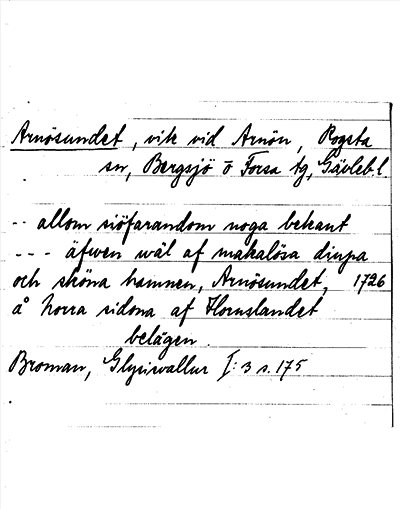 Arnösundet, vik vid Arnön, Rogsta
sn, Bergsjö o Forsa tg, Gävleb. l
-- allom siöfarandom noga bekant
--- äfwen wäl af makalösa diupa
och sköna hamnen, Arnösundet, 1726
å norra sidona af Hornslandet
belägen.
Broman, Glysisvallur I:3 s. 175